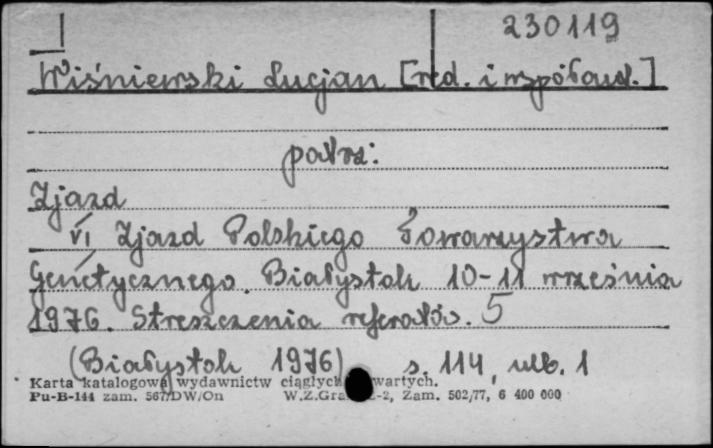 230119
Wiśniewski Lucjan [red. i współaut.]
patrz:
Zjazd
VI Zjazd Polskiego Towarzystwa
Genetycznego. Białystok 10-11 września
1976. Streszczenia referatów. 5
(Białystok 1976) s. 114, nlb. 1
Karta katalogowa wydawnictw ciągłych wartych.
Pu-B-144 zam. 567/DW/On W.Z.Gra -2, Zam. 502/77, 6 400 000